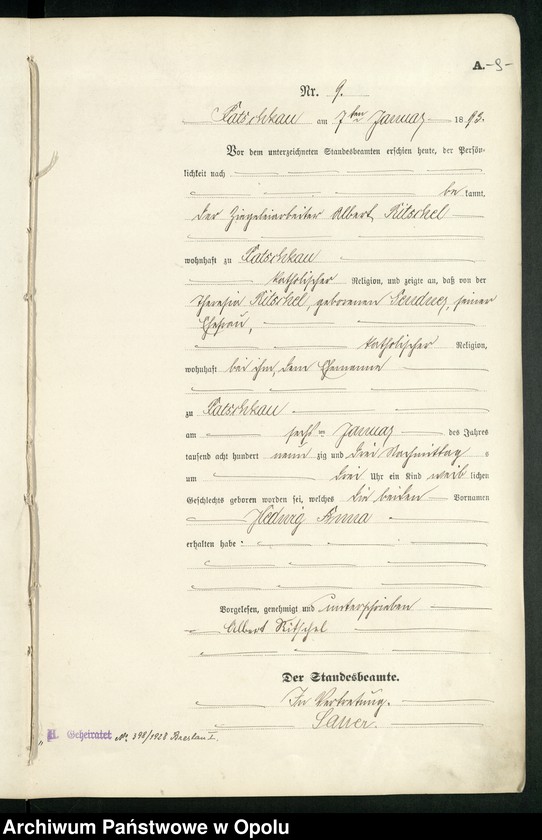 A. -9-
Nr. 9.
Patschkau am 7ten Januar 1893.
Vor dem unterzeichneten Standesbeamten erschien heute, der Persön-
lichkeit nach
be kannt,
der Ziegeleiarbeiter Albert Ritschel
wohnhaft zu Patschkau
katholischer Religion, und zeigte an, daß von der
Theresia Ritschel, geborenen seiner
Ehefrau,
katholischer Religion,
wohnhaft bei ihm, dem Ehemanne
zu Patschkau
am sechsten Januar des Jahres
tausend acht hundert neun zig und drei Nachmittag s
um drei Uhr ein Kind weib lichen
Geschlechts geboren worden sei, welches die beiden Vornamen
Hedwig Anna
erhalten habe:
Vorgelesen, genehmigt und unterschrieben
Albert Ritschel
Der Standesbeamte.
In Vertretung.
Sauer.
H. Geheiratet No. 398/1928 Breslau I.
Archiwum Państwowe w Opolu